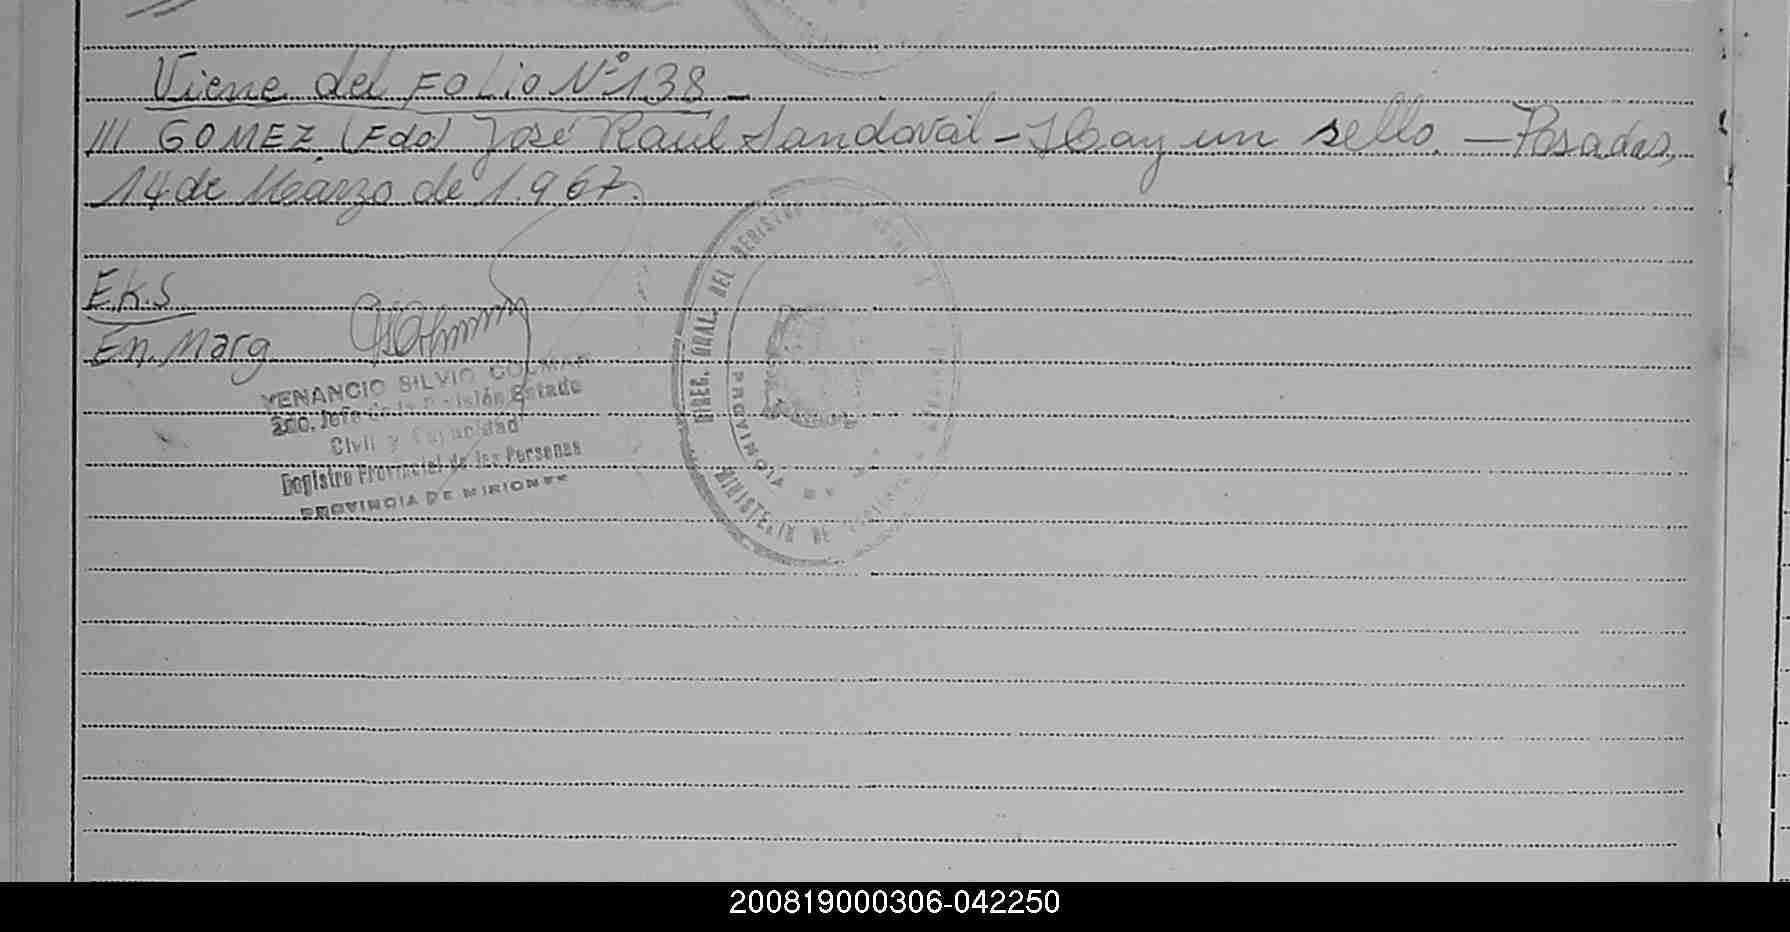 Viene del Folio Nº 138 -
/// GOMEZ. (Fdo) José Raul Sandoval - Hay un sello. - Posadas,
14 de Marzo de 1.967.
E.K.S
En. Marg
VENANCIO SILVIO
2do. Jefe de la División Estado
Civil y Capacidad
Registro Provincial de las Personas
PROVINCIA DE MISIONES
DIREC. GRAL. DEL REGISTRO
PROVINCIAL
MINISTERIO DE GOBIERNO
200819000306-042250